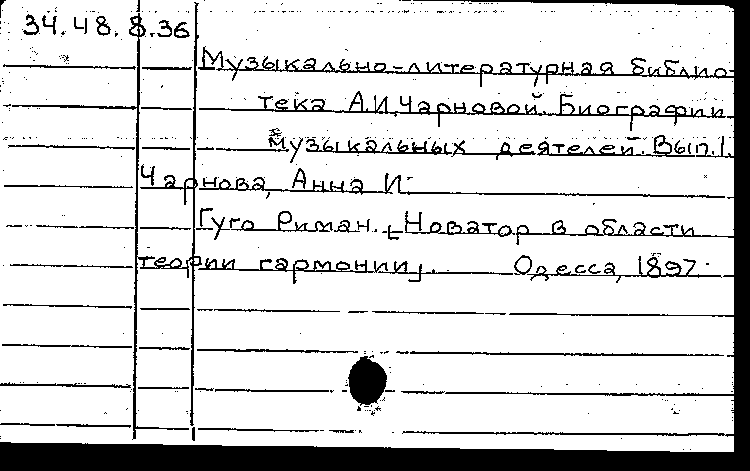 34.48.8.36
Музыкально-литературная библио-
тека А.И.Чарновой. Биографии
музыкальных деятелей. Вып.1.
Чарнова, Анна И.
Гуго Риман. [Новатор в области
теории гармонии]. Одесса, 1897.